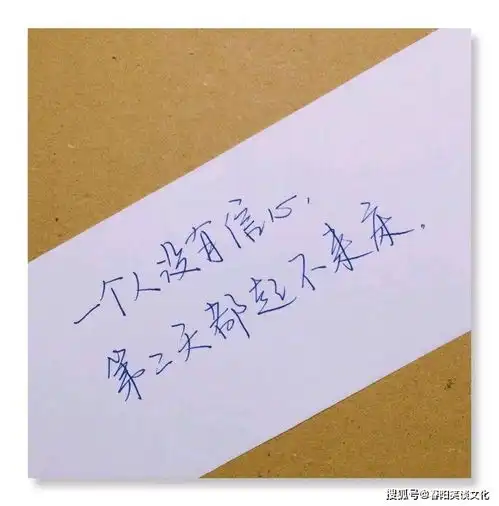 一个人没有信心，
第二天都起不来床．
搜狐号@春阳笑谈文化